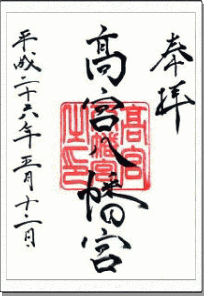 奉拝
髙宮八幡宮
髙宮八幡宮之印
平成二十六年五月十二日